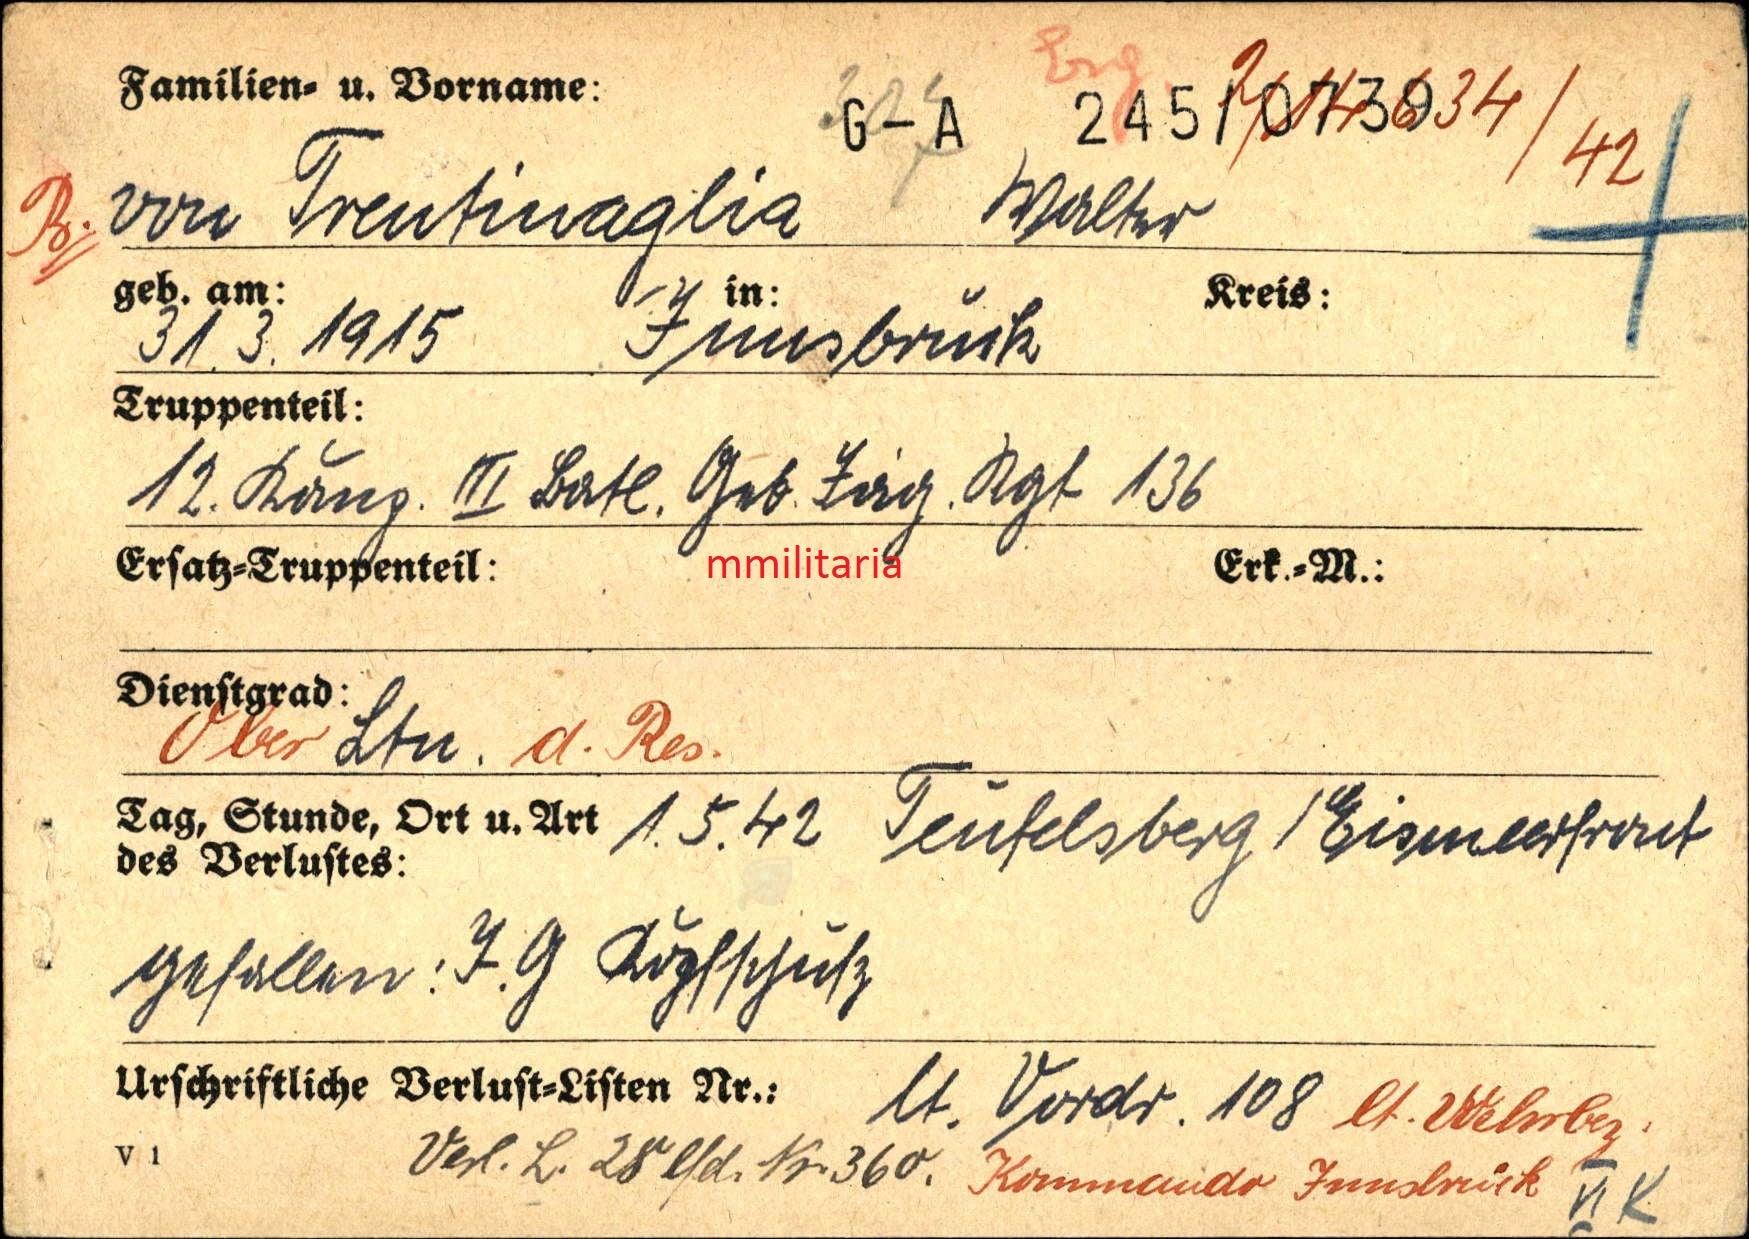 Familien- u. Vorname:
G-A 245/0739
634/42
von Trentinaglia Walter
geb. am: in: Kreis:
31.3.1915 Innsbruck
Truppenteil:
12. Komp. III Batl. Geb. Jäg. Rgt 136
Ersatz-Truppenteil: mmilitaria Erk.-M.:
Dienstgrad:
Ober Ltn. d. Res.
Tag, Stunde, Ort u. Art 1.5.42 Teufelsberg / Eismeerfront
des Verlustes:
gefallen: I.G Kopfschuß
Urschriftliche Verlust-Listen Nr.: lt. Vordr. 108 lt. Wehrbez.
V 1 Verl. L. 28 lfd. Nr. 360. Kommando Innsbruck VI K